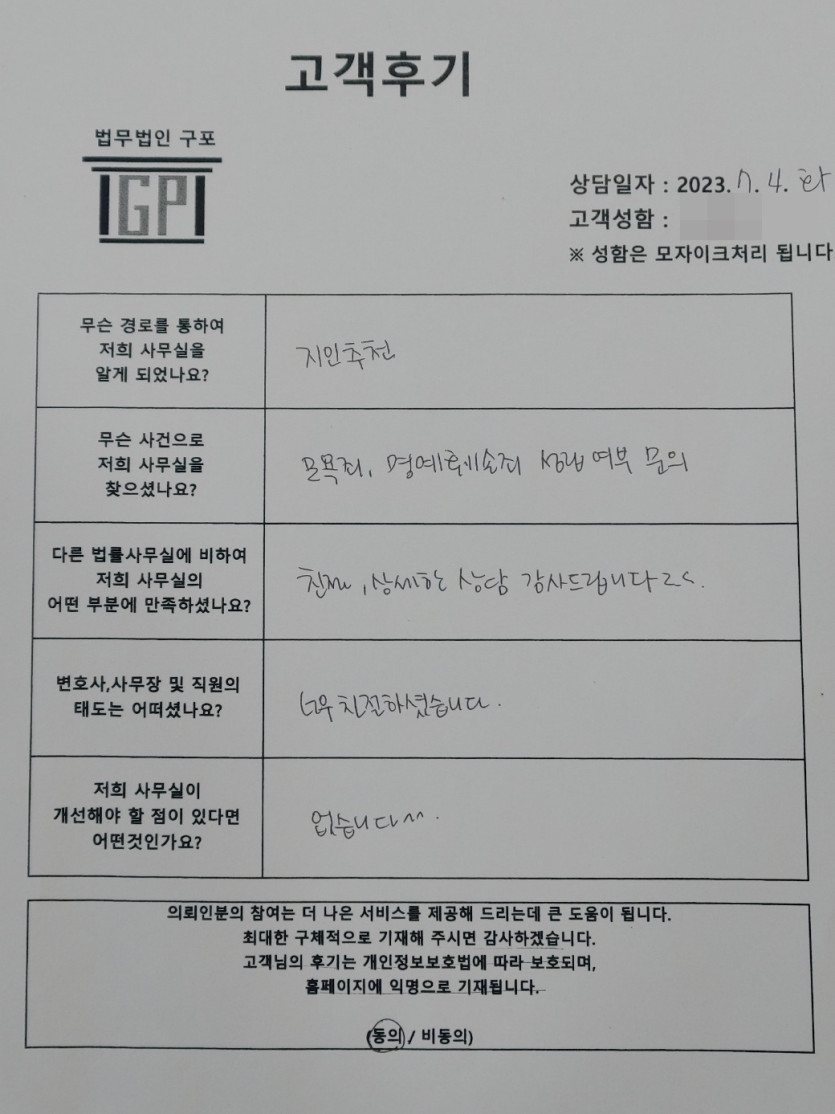 고객후기
법무법인 구포
IGPI
상담일자 : 2023. 7. 4. 화
고객성함 :
※ 성함은 모자이크처리 됩니다
무슨 경로를 통하여
저희 사무실을
알게 되었나요?
지인추천
무슨 사건으로
저희 사무실을
찾으셨나요?
모욕죄, 명예훼손죄 성립 여부 문의
다른 법률사무실에 비하여
저희 사무실의
어떤 부분에 만족하셨나요?
친절, 상세한 상담 감사드립니다
변호사,사무장 및 직원의
태도는 어떠셨나요?
너무 친절하셨습니다.
저희 사무실이
개선해야 할 점이 있다면
어떤것인가요?
없습니다^^.
의뢰인분의 참여는 더 나은 서비스를 제공해 드리는데 큰 도움이 됩니다.
최대한 구체적으로 기재해 주시면 감사하겠습니다.
고객님의 후기는 개인정보보호법에 따라 보호되며,
홈페이지에 익명으로 기재됩니다.
(동의 / 비동의)